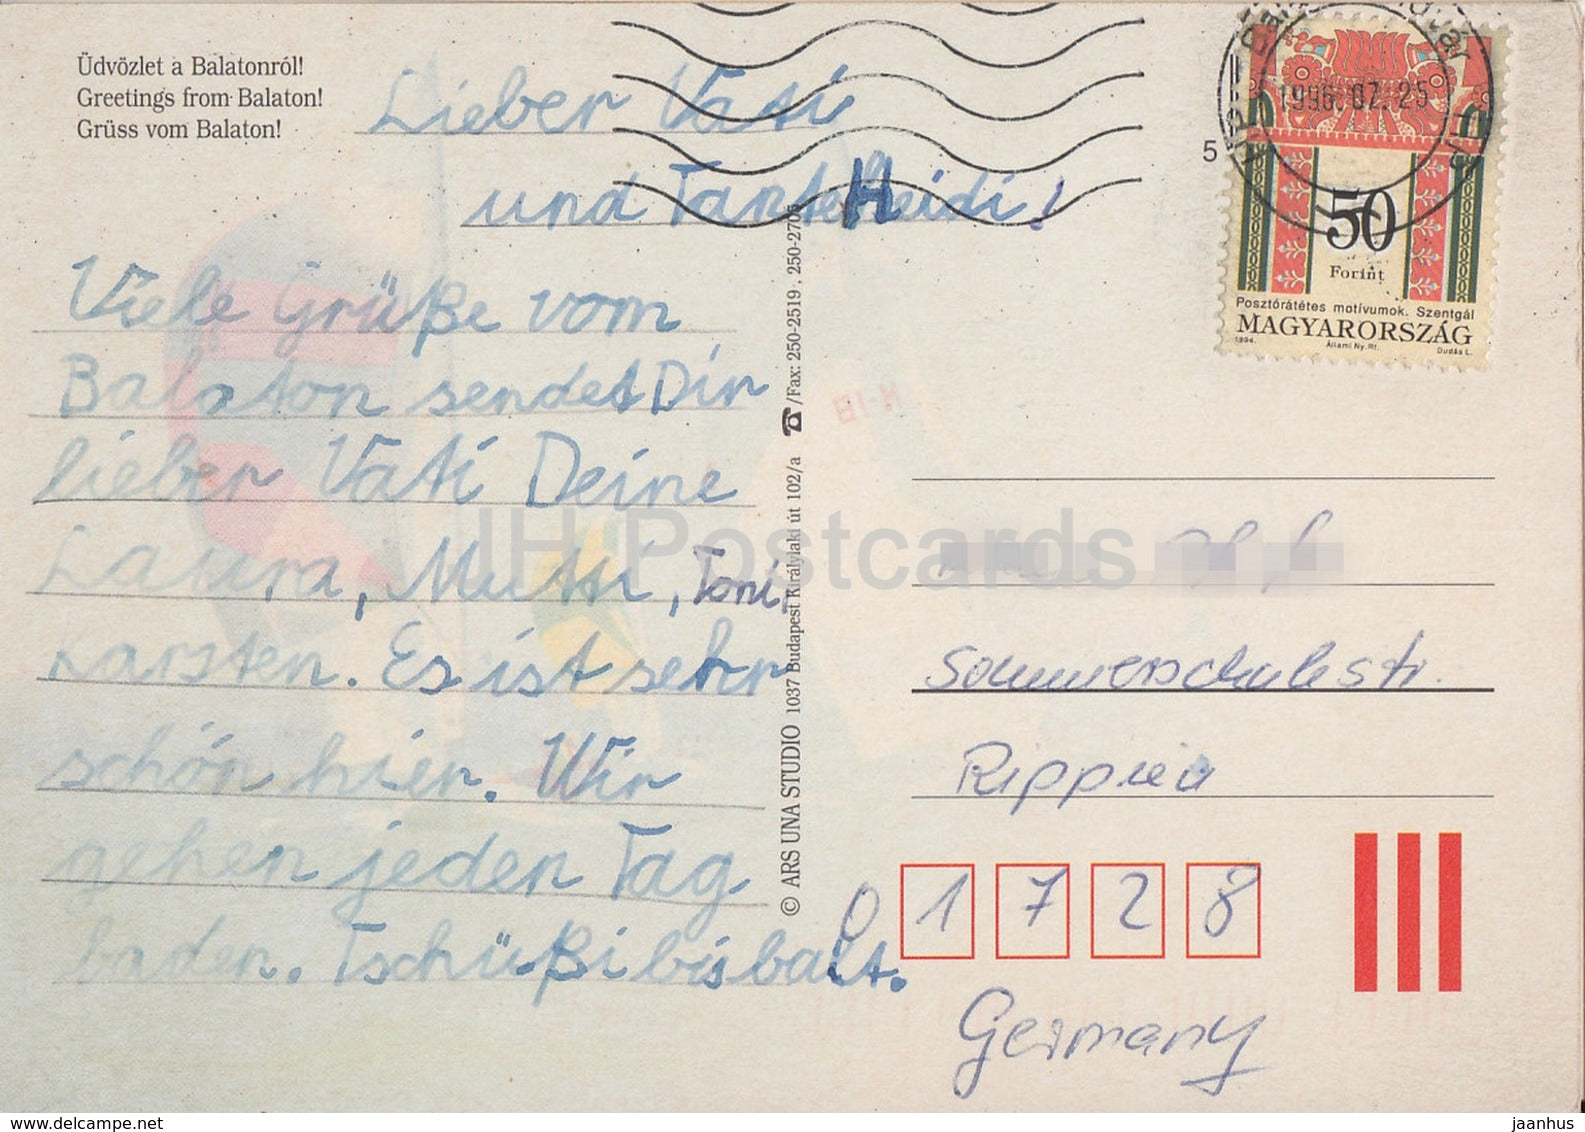 Üdvözlet a Balatonról!
Greetings from Balaton!
Grüss vom Balaton!
Lieber Vati
und Tante Heidi!
Viele Grüße vom
Balaton sendet Dir
lieber Vati Deine
Laura, Mutti, Toni,
Karsten. Es ist sehr
schön hier. Wir
gehen jeden Tag
baden. Tschüßi bis balt.
© ARS UNA STUDIO 1037 Budapest Királylaki út 102/a ☎/Fax: 250-2519, 250-2705
1996.07.25
5
50
Forint
Posztórátétes motívumok. Szentgál
MAGYARORSZÁG
1994. Állami Ny. Rt. Dudás L.
Sommerschuhstr.
Rippien
0 1 7 2 8
Germany
JH Postcards
www.delcampe.net
jaanhus